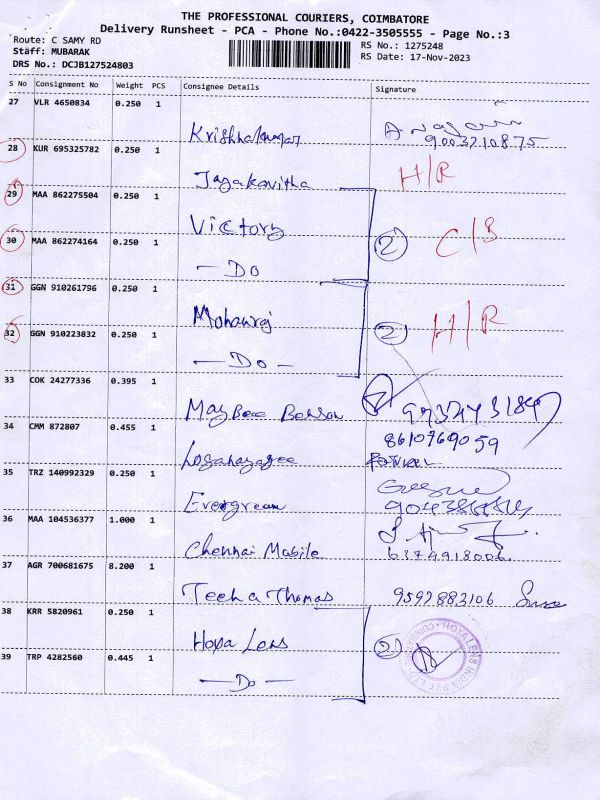 THE PROFESSIONAL COURIERS, COIMBATORE
Delivery Runsheet - PCA - Phone No.:0422-3505555 - Page No.:3
Route: C SAMY RD
Staff: MUBARAK
DRS No.: DCJB127524803
RS No.: 1275248
RS Date: 17-Nov-2023
S No Consignment No Weight PCS Consignee Details Signature
27 VLR 4650834 0.250 1
Krishnakumar
9003210875
28 KUR 695325782 0.250 1
Jayakavitha H/R
29 MAA 862275504 0.250 1
Victory
30 MAA 862274164 0.250 1
— Do 2 C/B
31 GGN 910261796 0.250 1
Mohanraj
32 GGN 910223832 0.250 1
— Do — 2 H/R
33 COK 24277336 0.395 1
34 CMM 872807 0.455 1
8610769059
35 TRZ 140992329 0.250 1
Evergreen
36 MAA 104536377 1.000 1
Chennai Mobile
6374918006
37 AGR 700681675 8.200 1
Teena Thomas 9592883106
38 KRR 5820961 0.250 1
Hoya Lens
39 TRP 4282560 0.445 1
— Do — 2
HOYA LENS INDIA PVT LTD